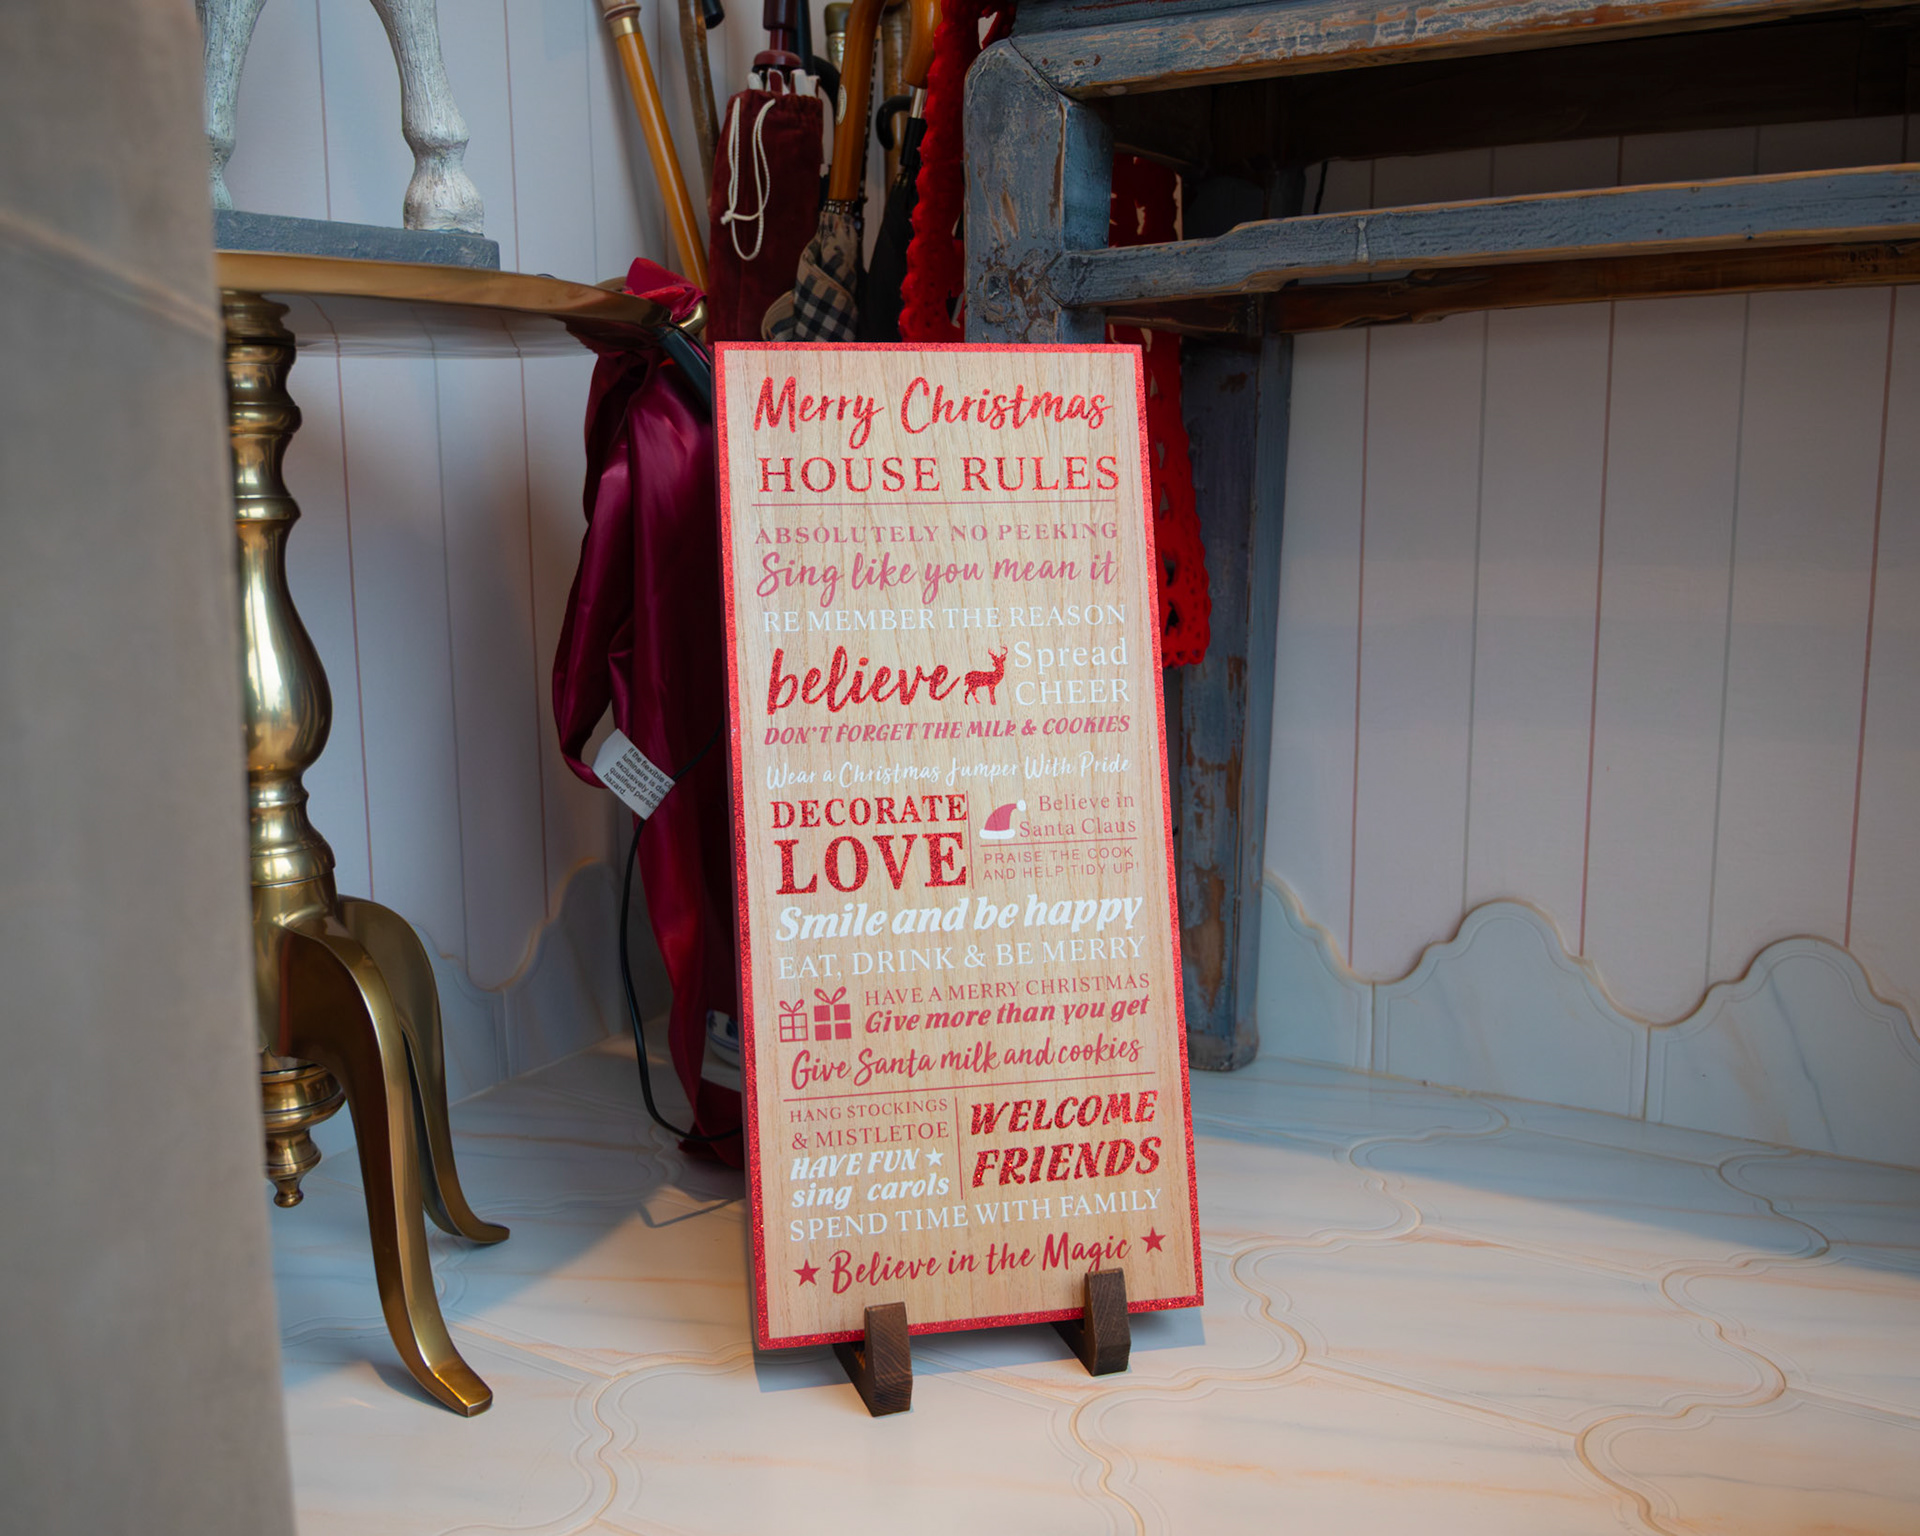 Merry Christmas
HOUSE RULES
ABSOLUTELY NO PEEKING
Sing like you mean it
RE MEMBER THE REASON
believe
Spread
CHEER
DON'T FORGET THE MILK & COOKIES
Wear a Christmas Jumper With Pride
DECORATE
LOVE
Believe in
Santa Claus
PRAISE THE COOK
AND HELP TIDY UP!
Smile and be happy
EAT, DRINK & BE MERRY
HAVE A MERRY CHRISTMAS
Give more than you get
Give Santa milk and cookies
HANG STOCKINGS
& MISTLETOE
HAVE FUN
sing carols
WELCOME
FRIENDS
SPEND TIME WITH FAMILY
Believe in the Magic
If the flexible
luminaire is
exclusively
qualified
hazard.